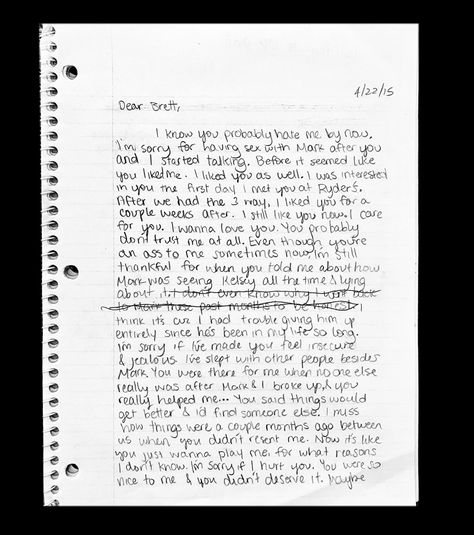 4/22/15
Dear Brett,
I know you probably hate me by now.
I'm sorry for having sex with Mark after you
and I started talking. Before it seemed like
you liked me. I liked you as well. I was interested
in you the first day I met you at Ryder's.
After we had the 3 way, I liked you for a
couple weeks after. I still like you now. I care
for you. I wanna love you. You probably
don't trust me at all. Even though you're
an ass to me sometimes now, I'm still
thankful for when you told me about how
Mark was seeing Kelsey all the time & lying
about it. I don't even know why I went back
to Mark these past months to be honest. I
think it's cuz I had trouble giving him up
entirely since he's been in my life so long.
I'm sorry if I've made you feel insecure
& jealous. I've slept with other people besides
Mark. You were there for me when no one else
really was after Mark & I broke up, & you
really helped me... You said things would
get better & I'd find someone else. I miss
how things were a couple months ago between
us when you didn't resent me. Now it's like
you just wanna play me, for what reasons
I don't know. I'm sorry if I hurt you. You were so
nice to me & you didn't deserve it. Maybe